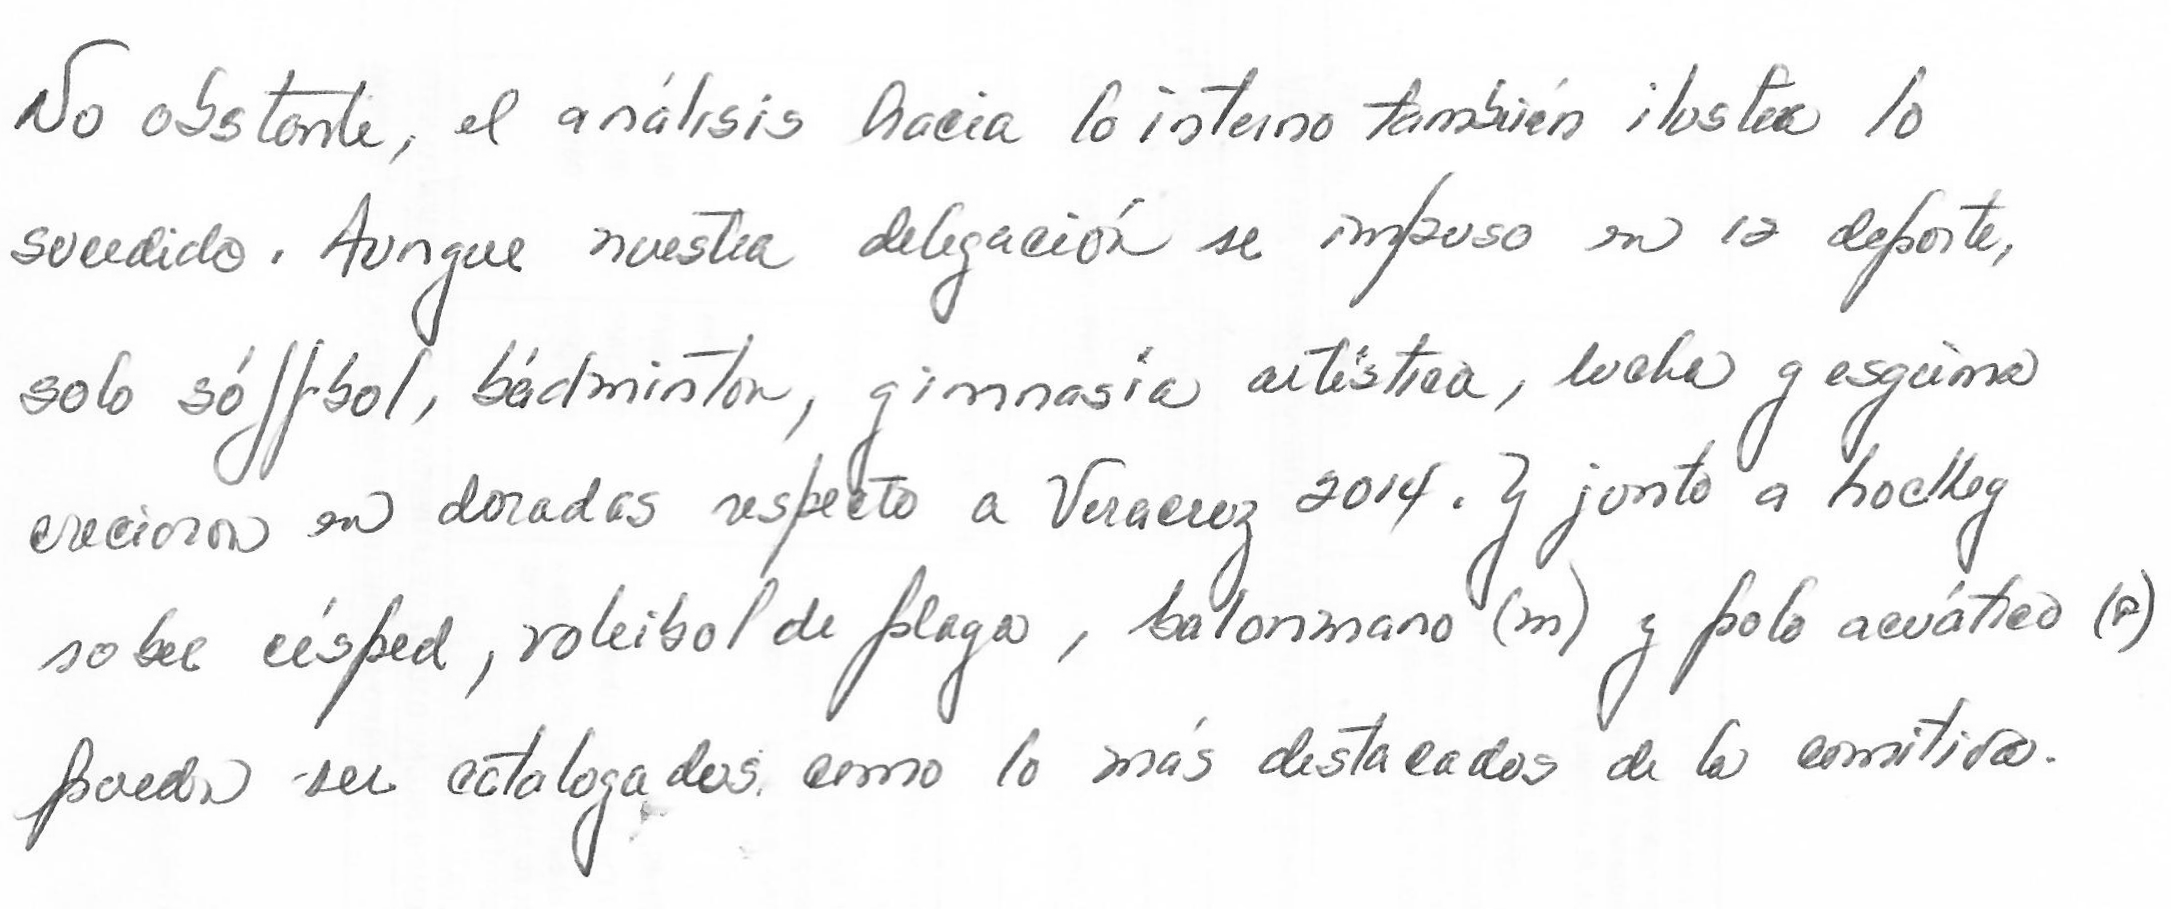 No obstante, el análisis hacia lo interno también ilustra lo
sucedido. Aunque nuestra delegación se impuso en 12 deporte,
solo sóftbol, bádminton, gimnasia artística, lucha y esgrima
crecieron en doradas respecto a Veracruz 2014. Y junto a hockey
sobre césped, voleibol de playa, balonmano (m) y polo acuático
pueden ser catalogados como lo más destacados de la comitiva.